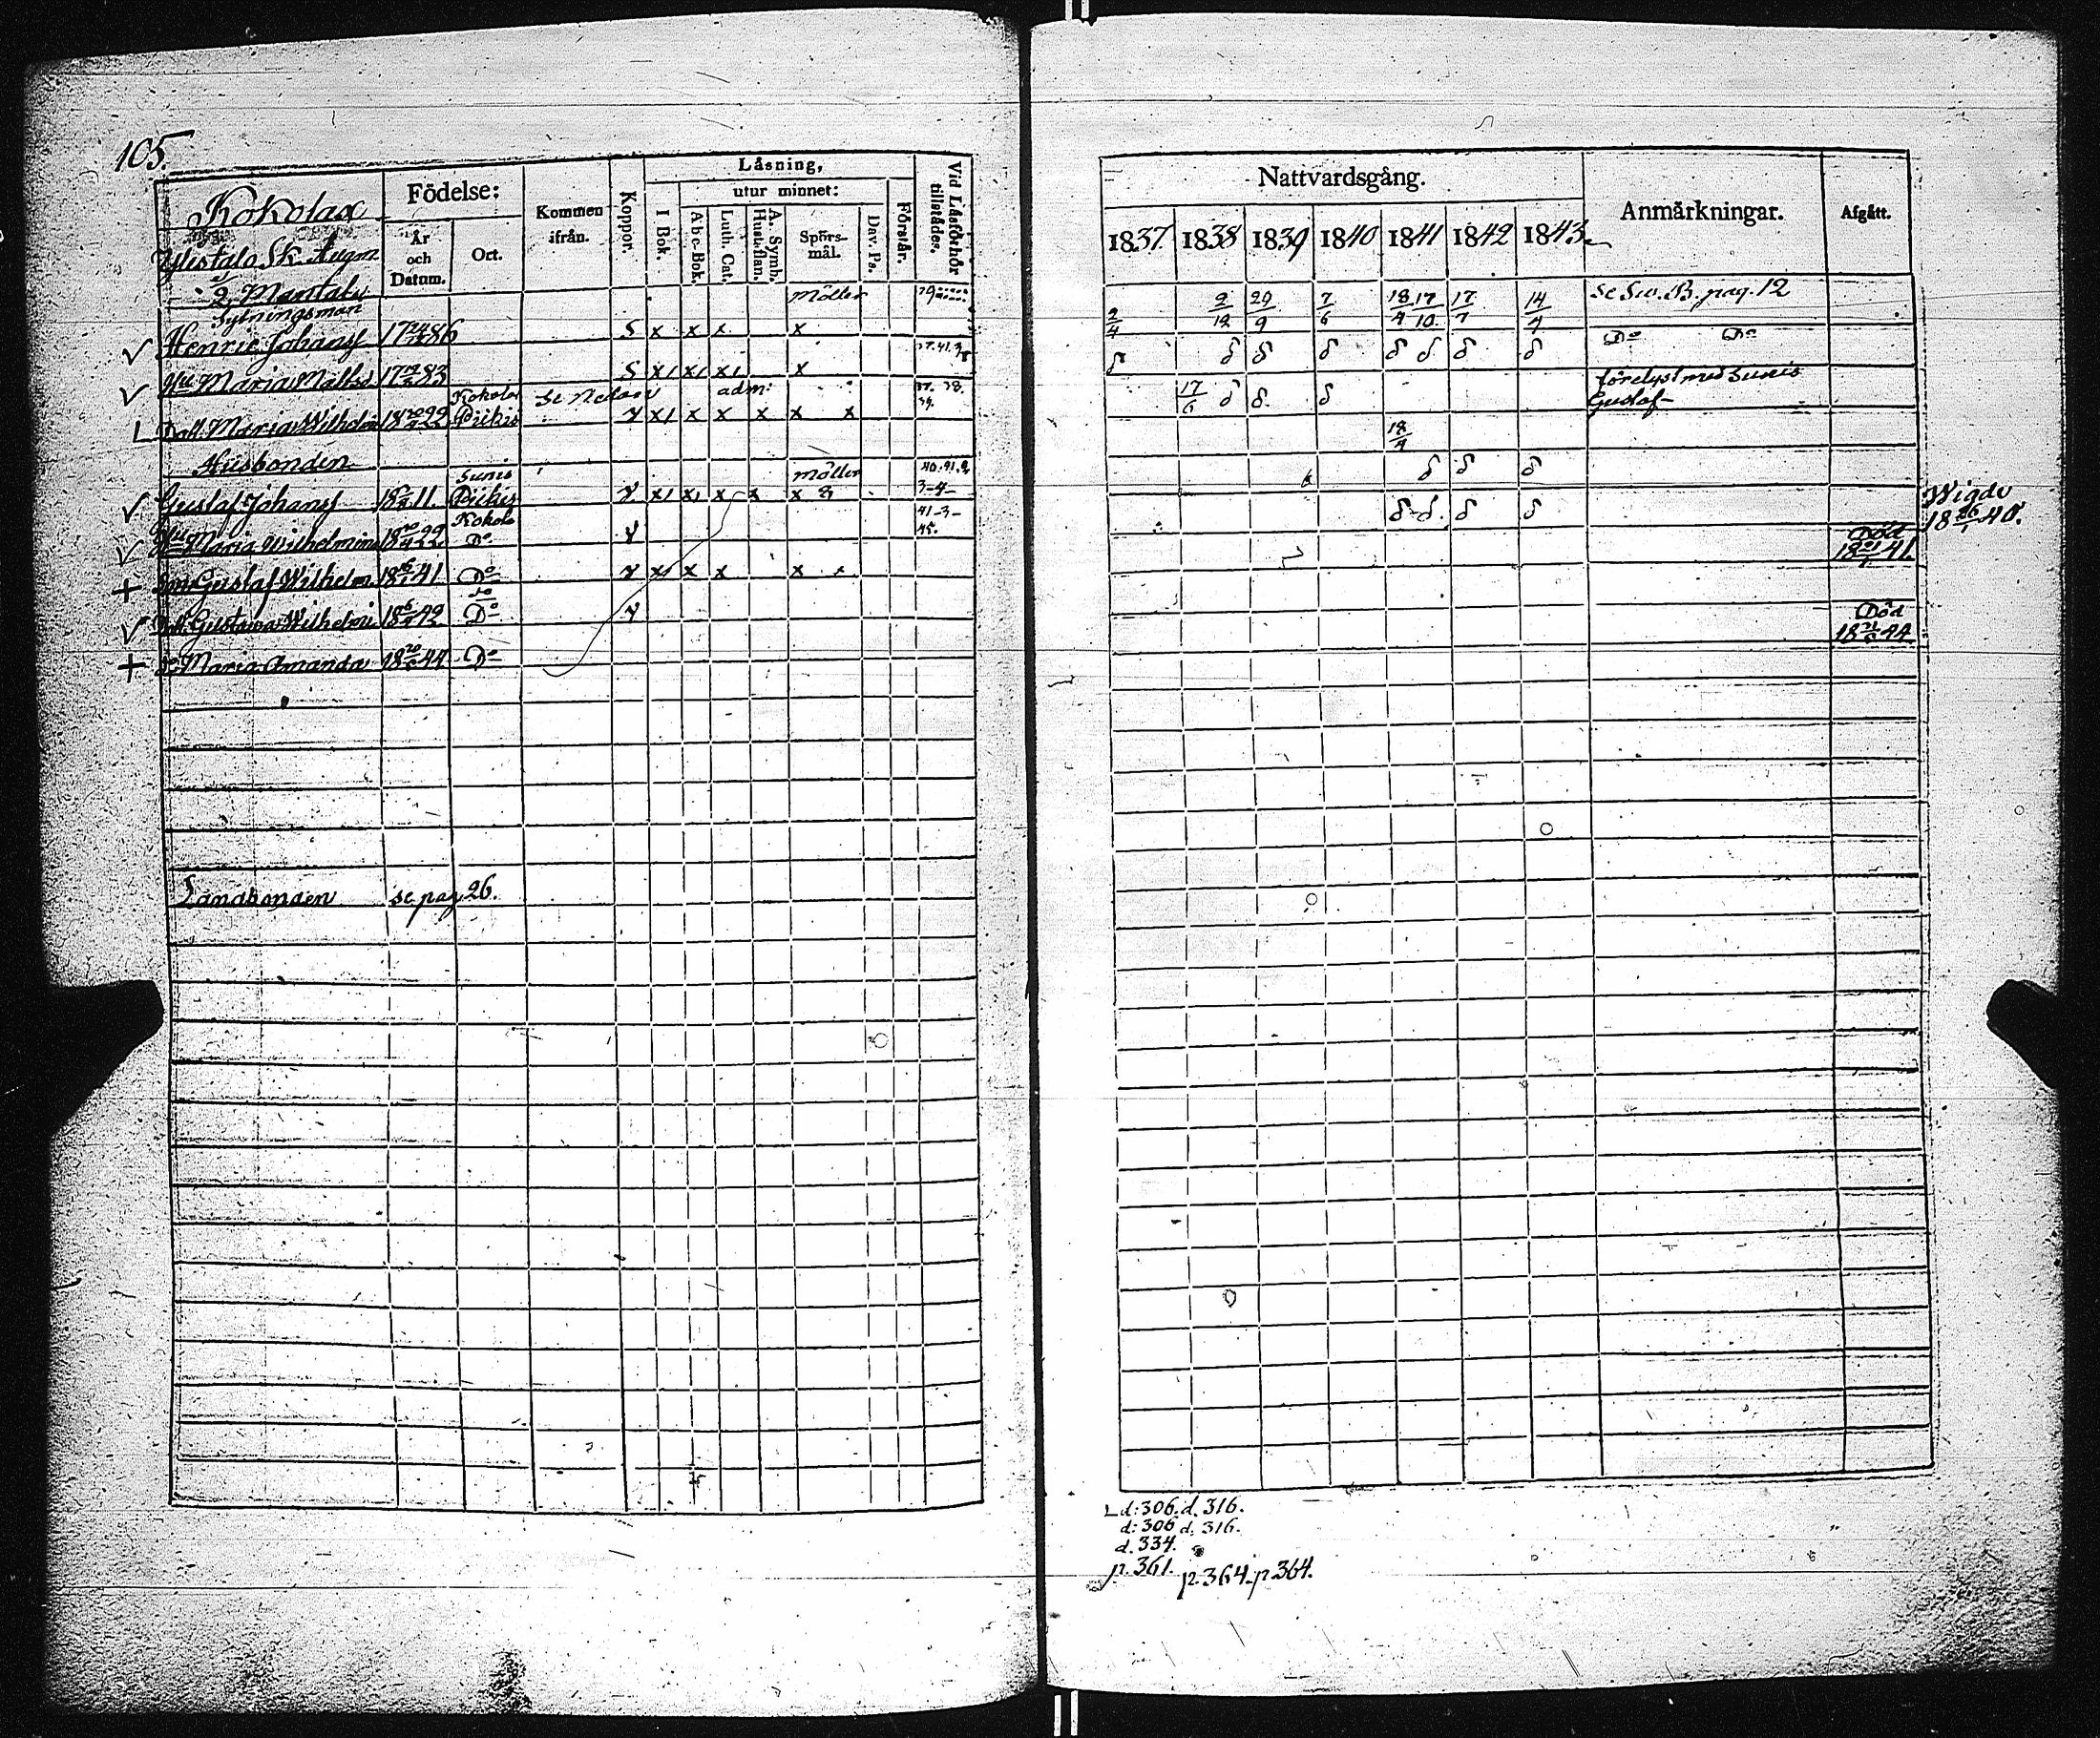 105.
Kokolax
Ylistalo Sk. Augm
Mantal
Födelse:
År och Datum.
Ort.
Kommen ifrån.
Koppor.
Låsning,
I Bok.
utur minnet:
Abc-Bok.
Luth. Cat.
A. Symb. Hust.flan.
Spörs-mål.
Dav. Ps.
Förstår.
Vid Läsförhör tillstädes.
Nattvardsgång.
1837 1838 1839 1840 1841 1842 1843
Anmårkningar.
Afgått.
Sytningsman
Möller
2/4 2/12 29/9 7/6 18/4 17/10 17/7 14/4
Se Sw. B. pag. 12
Henric Johansf 17 86 S x x x x
Hu Maria Matsd 17 83 S x x x x
Do Do
Dott. Maria Wilhelmi 18 22 Kokola Piikis se nedan adm: x x x x x
37. 38. 39.
17/6
förelyst med Sunis Gustaf
18/4
Husbonden
Möller
Gustaf Johansf 18 11. Sunis Piikis
40. 41. 2
3-4-
Hu Maria Wilhelmina 18 22 Kokola Do
41-3-
45.
Wigde
18 26/1 40.
Son Gustaf Wilhelm 18 16/1 41 Do
Död
18 41
Dott. Gustava Wilhelmi 18 42 Do
Do Maria Amanda 18 44 Do
Död
18 44
Landbonden se pag 26.
L d: 306. d. 316.
d: 306 d. 316.
d. 334.
p. 361. p. 364. p. 364.